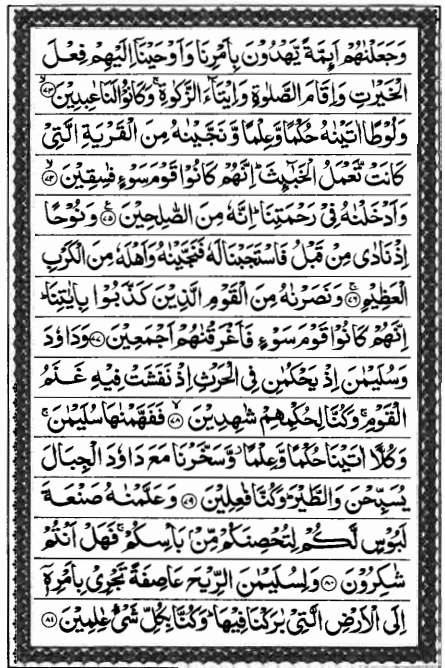 وَجَعَلْنٰهُمْ اَئِمَّةً يَّهْدُوْنَ بِاَمْرِنَا وَاَوْحَيْنَاۤ اِلَيْهِمْ فِعْلَ
الْخَيْرٰتِ وَاِقَامَ الصَّلٰوةِ وَاِيْتَآءَ الزَّكٰوةِ ۚ وَكَانُوْا لَنَا عٰبِدِيْنَ ۙ﴿۷۳﴾
وَلُوْطًا اٰتَيْنٰهُ حُكْمًا وَّعِلْمًا وَّنَجَّيْنٰهُ مِنَ الْقَرْيَةِ الَّتِيْ
كَانَتْ تَّعْمَلُ الْخَبٰٓئِثَ ؕ اِنَّهُمْ كَانُوْا قَوْمَ سَوْءٍ فٰسِقِيْنَ ۙ﴿۷۴﴾
وَاَدْخَلْنٰهُ فِيْ رَحْمَتِنَا ؕ اِنَّهٗ مِنَ الصّٰلِحِيْنَ ﴿۷۵﴾ وَنُوْحًا
اِذْ نَادٰى مِنْ قَبْلُ فَاسْتَجَبْنَا لَهٗ فَنَجَّيْنٰهُ وَاَهْلَهٗ مِنَ الْكَرْبِ
الْعَظِيْمِ ﴿۷۶﴾ وَنَصَرْنٰهُ مِنَ الْقَوْمِ الَّذِيْنَ كَذَّبُوْا بِاٰيٰتِنَا ؕ
اِنَّهُمْ كَانُوْا قَوْمَ سَوْءٍ فَاَغْرَقْنٰهُمْ اَجْمَعِيْنَ ﴿۷۷﴾ وَدَاوٗدَ
وَسُلَيْمٰنَ اِذْ يَحْكُمٰنِ فِي الْحَرْثِ اِذْ نَفَشَتْ فِيْهِ غَنَمُ
الْقَوْمِ ۚ وَكُنَّا لِحُكْمِهِمْ شٰهِدِيْنَ ۙ﴿۷۸﴾ فَفَهَّمْنٰهَا سُلَيْمٰنَ ۚ
وَكُلًّا اٰتَيْنَا حُكْمًا وَّعِلْمًا ؗ وَّسَخَّرْنَا مَعَ دَاوٗدَ الْجِبَالَ
يُسَبِّحْنَ وَالطَّيْرَ ؕ وَكُنَّا فٰعِلِيْنَ ﴿۷۹﴾ وَعَلَّمْنٰهُ صَنْعَةَ
لَبُوْسٍ لَّكُمْ لِتُحْصِنَكُمْ مِّنْۢ بَاْسِكُمْ ۚ فَهَلْ اَنْتُمْ
شٰكِرُوْنَ ﴿۸۰﴾ وَلِسُلَيْمٰنَ الرِّيْحَ عَاصِفَةً تَجْرِيْ بِاَمْرِهٖۤ
اِلَى الْاَرْضِ الَّتِيْ بٰرَكْنَا فِيْهَا ؕ وَكُنَّا بِكُلِّ شَيْءٍ عٰلِمِيْنَ ﴿۸۱﴾